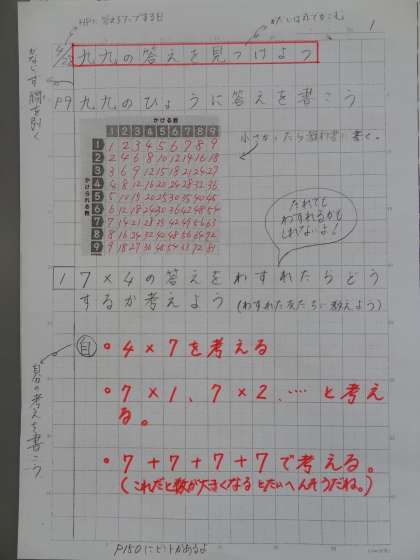 1
九九の答えを見つけよう
かならず線を引く
P9 九九のひょうに答えを書こう
かける数
1 2 3 4 5 6 7 8 9
かけられる数
1 1 2 3 4 5 6 7 8 9
2 2 4 6 8 10 12 14 16 18
3 3 6 9 12 15 18 21 24 27
4 4 8 12 16 20 24 28 32 36
5 5 10 15 20 25 30 35 40 45
6 6 12 18 24 30 36 42 48 54
7 7 14 21 28 35 42 49 56 63
8 8 16 24 32 40 48 56 64 72
9 9 18 27 36 45 54 63 72 81
小さかったら教科書に書く。
だれでも
わすれるかも
しれないよ!
1 7×4の答えをわすれたらどう
するか考えよう (わすれた友だちに教えよう)
自 ・4×7を考える
・7×1、7×2、…‥と考え
る。
・7+7+7+7で考える。
(これだと数が大きくなるとたいへんそうだね。)
自分の考えを書こう
P150にヒントがあるよ